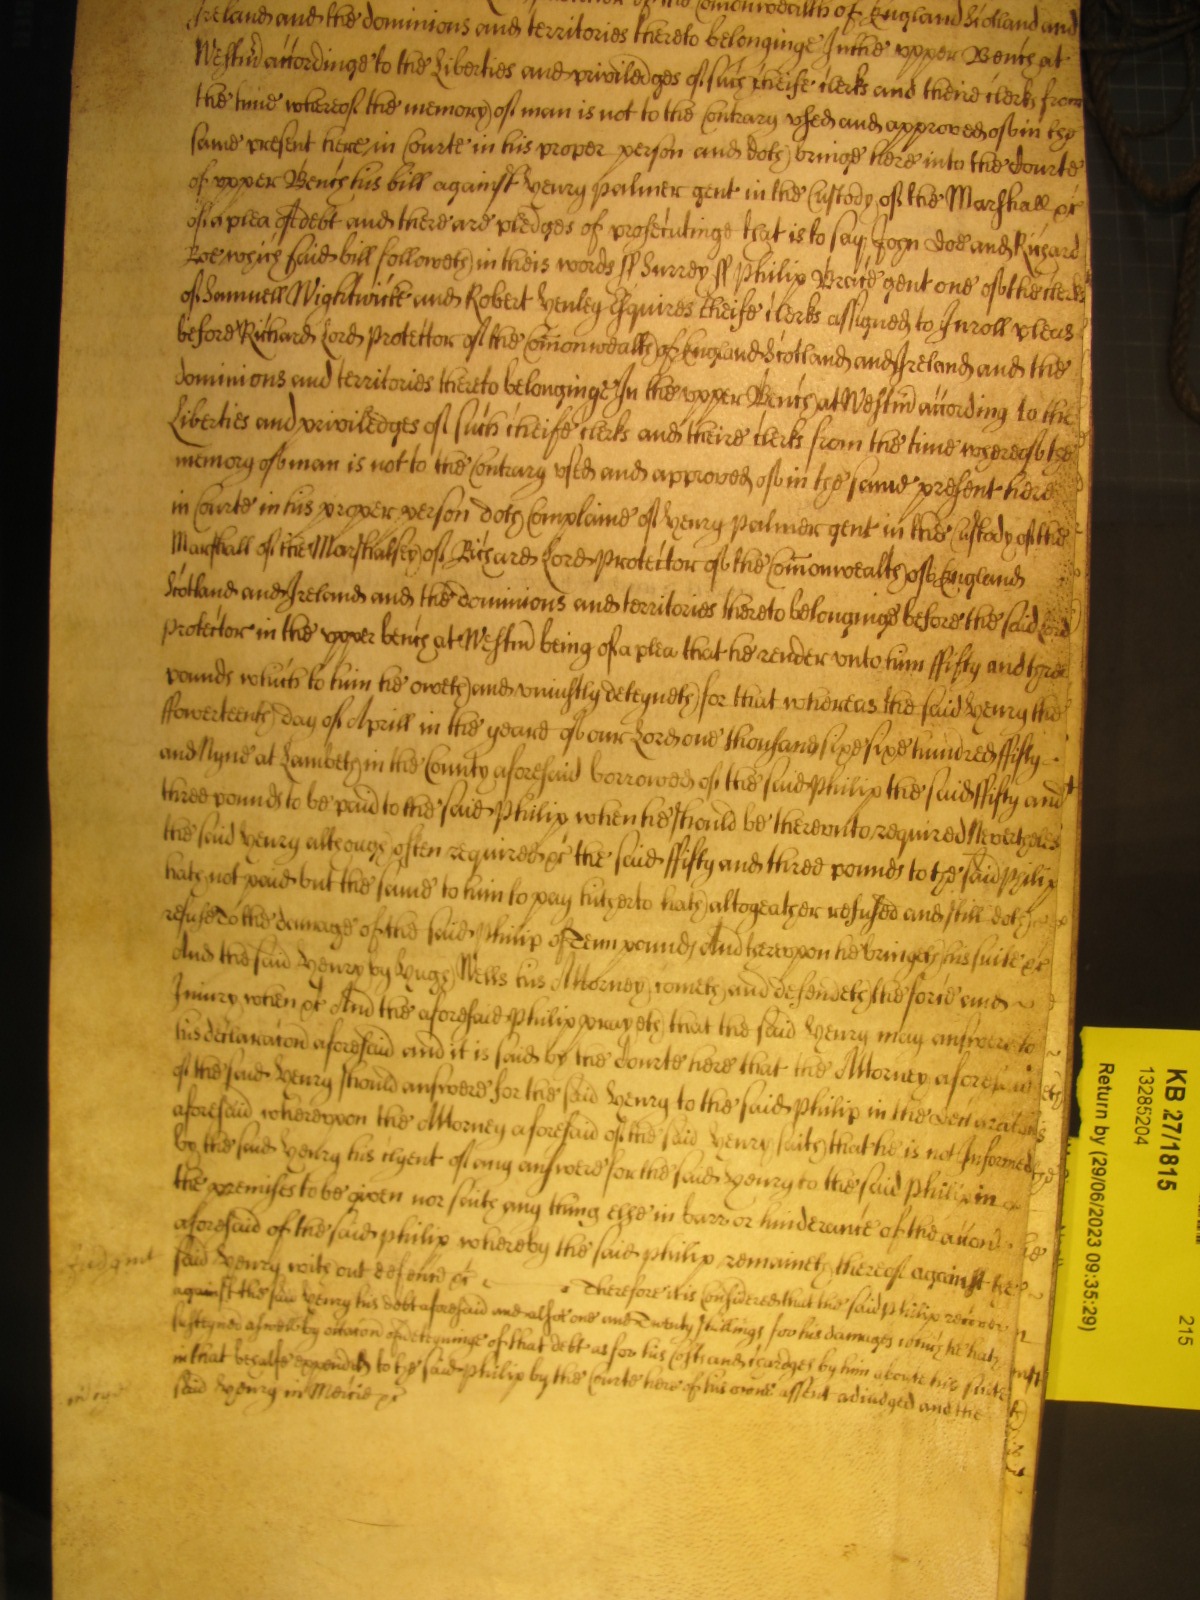 Comonwealth of England Scotland and
Ireland and the dominions and territories thereto belonginge In the vpper Bench at
Westm̃ accordinge to the Liberties and priviledges of such cheife clerks and theire clerks from
the time whereof the memory of man is not to the contrary vsed and approved of in the
same present here in Courte in his proper person and doth bringe here into the Courte
of vpper Bench his bill against Henry Palmer gent in the Custody of the Marshall &c
of a plea of debt and there are pledges of prosecutinge that is to say John Doe and Richard
Roe which said bill followeth in theis words ss Surrey ss Philip Brace gent one of the clerks
of Samuell Wightwicke and Robert Henley Esquires cheife clerks assigned to Inroll pleas
before Richard Lord Protector of the Com̃onwealth of England Scotland and Ireland and the
dominions and territories thereto belonginge In the vpper Bench at Westm̃ according to the
Liberties and priviledges of such cheife clerks and theire clerks from the time whereof the
memory of man is not to the Contrary vsed and approved of in the same present here
in Courte in his proper person doth Complaine of Henry Palmer gent in the Custody of the
Marshall of the Marshalsey of Richard Lord Protector of the Com̃onwealth of England
Scotland and Ireland and the dominions and territories thereto belonginge before the said Lord
Protector in the vpper bench at Westm̃ being of a plea that he render vnto him ffifty and three
pounds which to him he oweth and vniustly deteyneth for that whereas the said Henry the
ffowerteenth day of Aprill in the yeare of our Lord one thousand sixe sixe hundred ffifty
and Nyne at Lambeth in the County aforesaid borrowed of the said Philip the said ffifty and
three pounds to be paid to the said Philip when he should be therevnto required Neverthelesse
the said Henry although often required &c the said ffifty and three pounds to the said Philip
hath not paid but the same to him to pay hitherto hath altogeather refused and still doth
refuse To the damage of the said Philip of Tenn pounds And therevpon he bringeth his suite &c
And the said Henry by Hugh Wells his Attorney cometh and defendeth the force and
Iniury when &c And the aforesaid Philip prayeth that the said Henry may answere to
his declaraco̅n aforesaid and it is said by the Courte here that the Attorney aforesaid
of the said Henry should answere for the said Henry to the said Philip in the declaraco̅n
aforesaid wherevpon the Attorney aforesaid of the said Henry saith that he is not Informed
by the said Henry his clyent of any answere for the said Henry to the said Philip in
the premises to be given nor saith any thing else in barr or hinderance of the acco̅n
aforesaid of the said Philip whereby the said Philip remaineth thereof against the
Judgmt said Henry without defence &c Therefore it is Considered that the said Philip recover
against the said Henry his debt aforesaid and alsoe one and Twenty shillings for his damages which he hath
susteyned aswell by occasion of deteyninge of that debt as for his Costs and chardges by him aboute his suite
in that behalfe expended to the said Philip by the Courte here of his owne assent adiudged and the
said Henry in Mercie &c
KB 27/1815
215
13285204
Return by (29/06/2023 09:35:29)